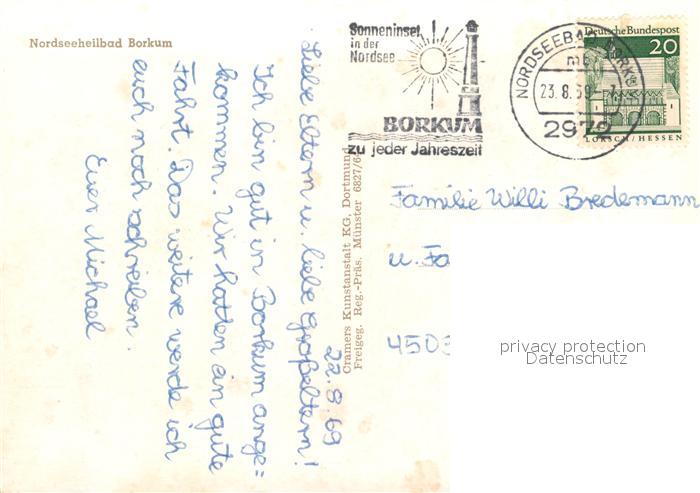 Nordseeheilbad Borkum
Sonneninsel
in der
Nordsee
BORKUM
zu jeder Jahreszeit
NORDSEEBAD BORKUM
mb
23.8.69
2972
Deutsche Bundespost
20
LORSCH/HESSEN
22.8.69
Liebe Eltern u. liebe Großeltern!
Ich bin gut in Borkum ange=
kommen. Wir hatten ein gute
Fahrt. Das weitere werde ich
euch noch schreiben.
Euer Michael
Cramers Kunstanstalt KG, Dortmund
Freigeg. Reg.-Präs. Münster 6827/6
Familie Willi Bredemann
u. Fa
4503
privacy protection
Datenschutz